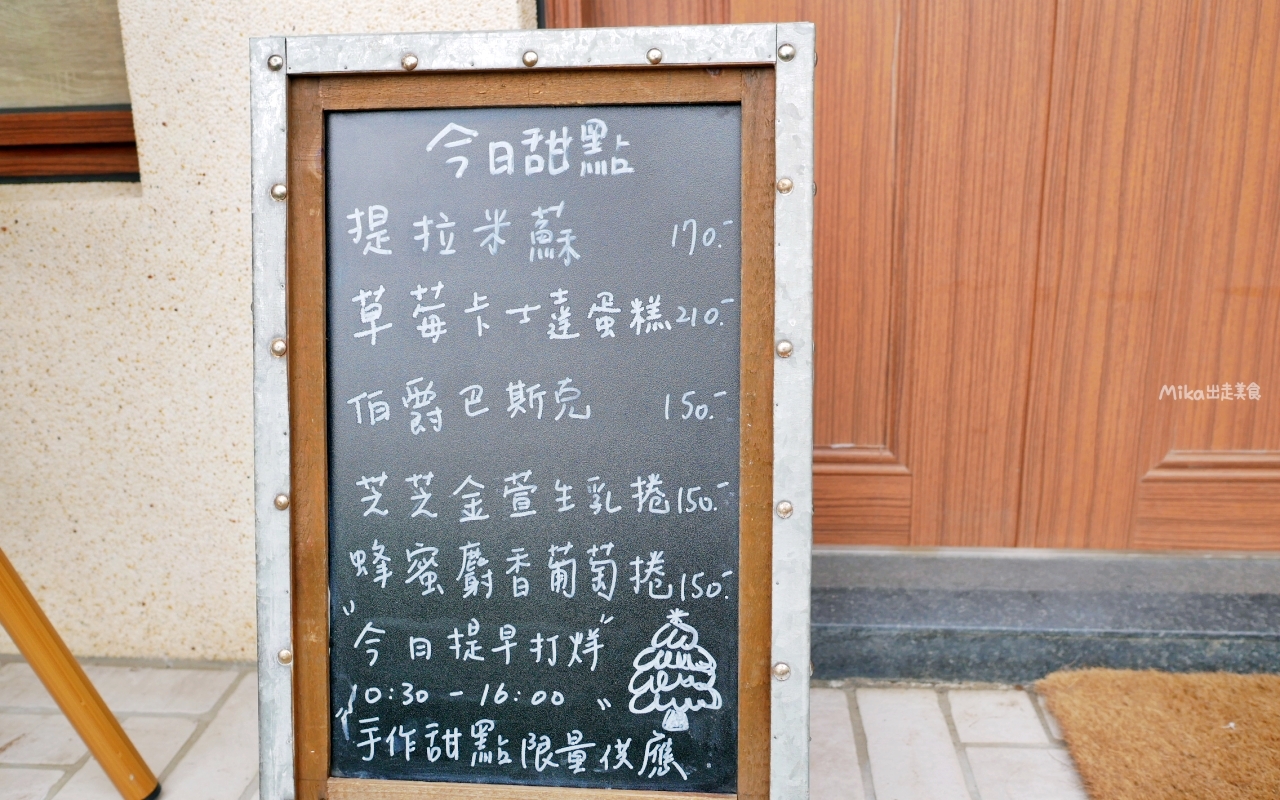 今日甜點
提拉米蘇 170.-
草莓卡士達蛋糕 210.-
伯爵巴斯克 150.-
芝芝金萱生乳捲 150.-
蜂蜜麝香葡萄捲 150.-
"今日提早打烊"
10:30 - 16:00
手作甜點限量供應
Mika出走美食